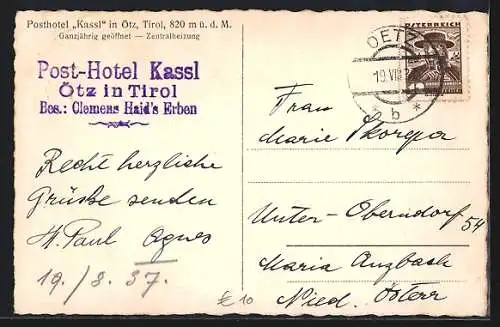 Posthotel „Kassl" in Ötz, Tirol, 820 m ü. d. M.
Ganzjährig geöffnet — Zentralheizung
Post-Hotel Kassl
Ötz in Tirol
Bes.: Clemens Haid's Erben
Recht herzliche
Grüsse senden
H. Paul Agnes
19./8.37.
ÖSTERREICH
OETZ
19. VIII
* b *
Frau
Marie Skorepa
Unter-Oberndorf 54
Maria Anzbach
Nied. Österr
€ 10